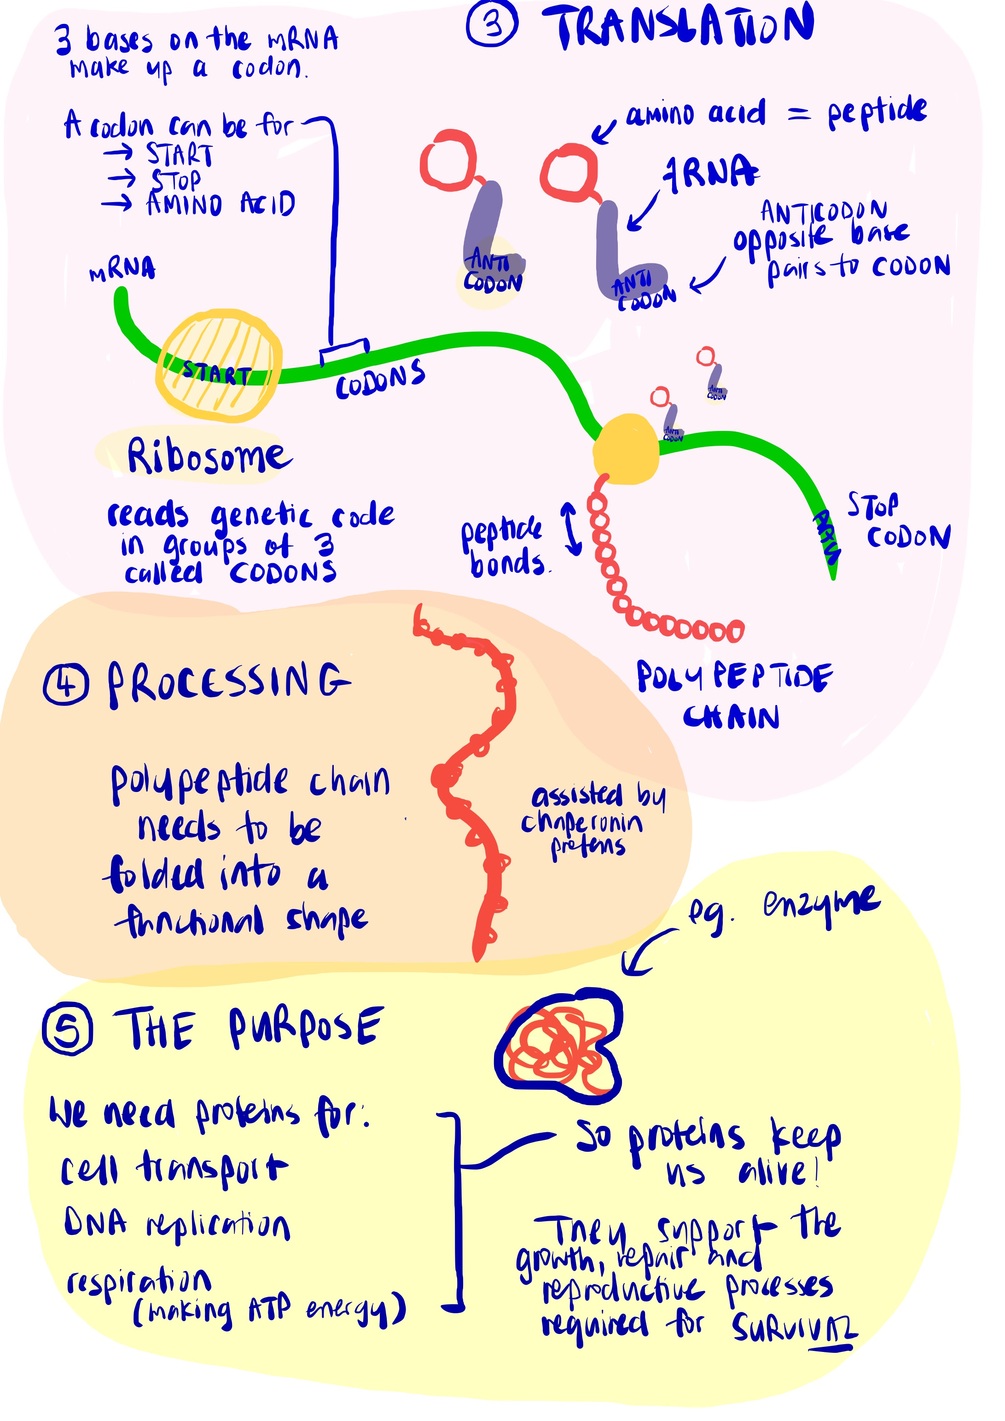 3 bases on the mRNA
make up a codon.
③ TRANSLATION
A codon can be for
→ START
→ STOP
→ AMINO ACID
amino acid = peptide
tRNA
ANTICODON
opposite base
pairs to CODON
ANTI
CODON
ANTI
CODON
mRNA
START
CODONS
ANTI
CODON
ANTI
CODON
Ribosome
reads genetic code
in groups of 3
called CODONS
peptide
bonds.
STOP
CODON
POLYPEPTIDE
CHAIN
④ PROCESSING
polypeptide chain
needs to be
folded into a
functional shape
assisted by
chaperonin
proteins
eg. enzyme
⑤ THE PURPOSE
We need proteins for:
cell transport
DNA replication
respiration
(making ATP energy)
so proteins keep
us alive!
They support the
growth, repair and
reproductive processes
required for SURVIVAL